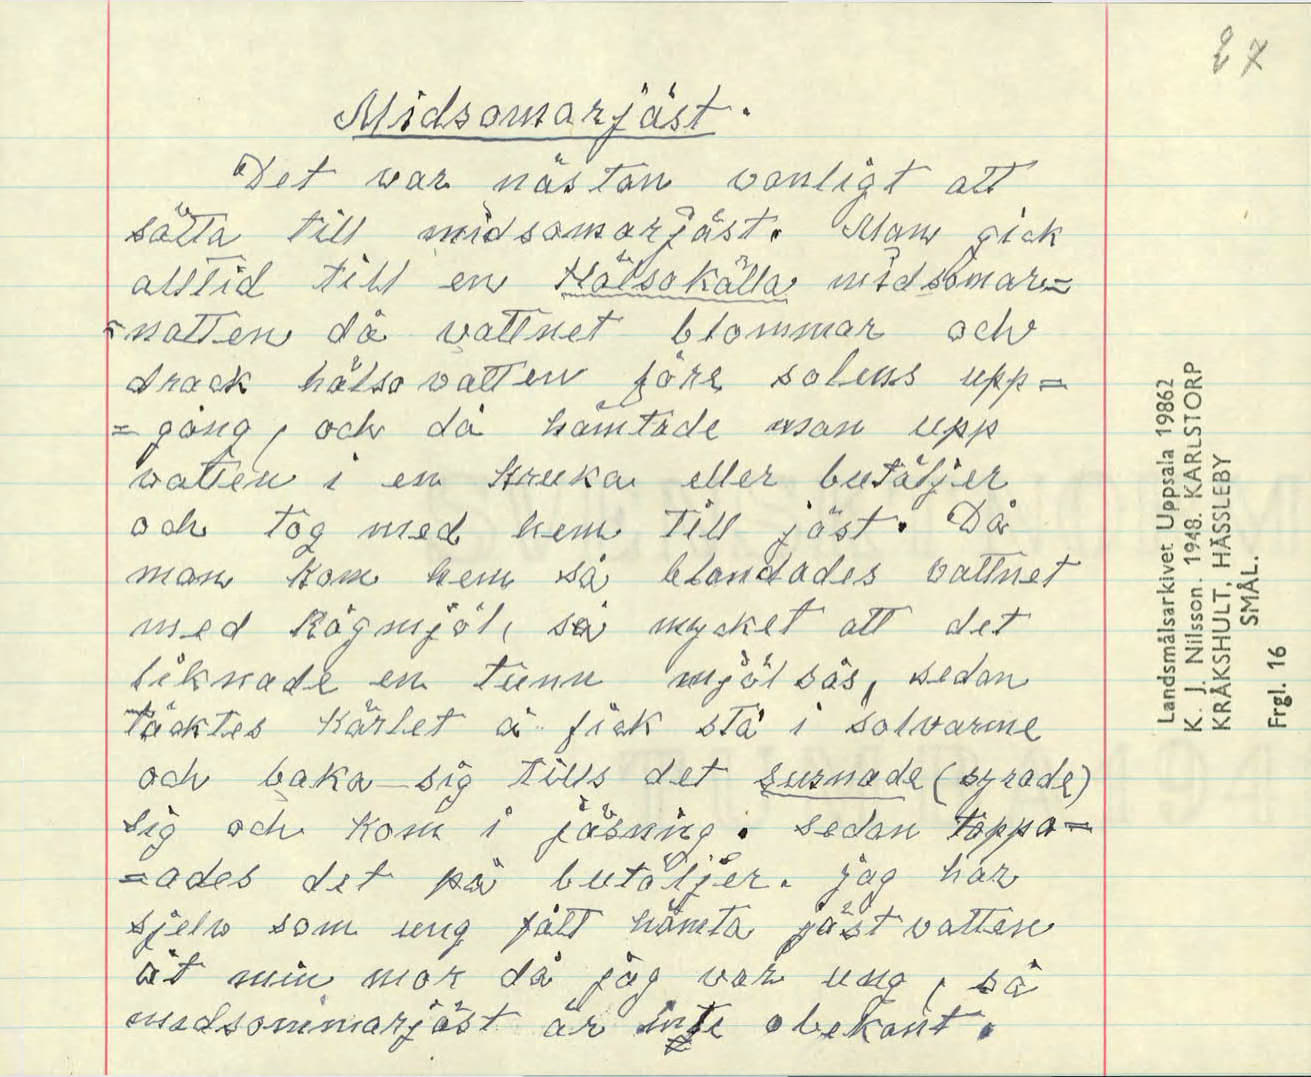 27
Midsomarjäst.
Det var nästan vanligt att
sätta till midsomarjäst. Man gick
alltid till en Hälsokälla midsomar=
=natten då vattnet blommar och
drack hälsovatten före solens upp=
=gång, och då hämtade man upp
vatten i en Kruka eller butäljer
och tog med hem till jäst. Då
man kom hem så blandades vattnet
med Rågmjöl, så mycket att det
liknade en tunn mjölsås, sedan
täcktes Kärlet å fick stå i solvarme
och baka sig tills det surnade (syrade)
sig och kom i jäsning. sedan tappa=
=ades det på butäljer. jag har
sjelv som ung fått hämta jästvatten
åt min mor då jag var ung, så
midsommarjäst är inte obekant.
Landsmålsarkivet Uppsala 19862
K. J. Nilsson. 1948. KARLSTORP
KRÅKSHULT, HÄSSLEBY
SMÅL.
Frgl. 16